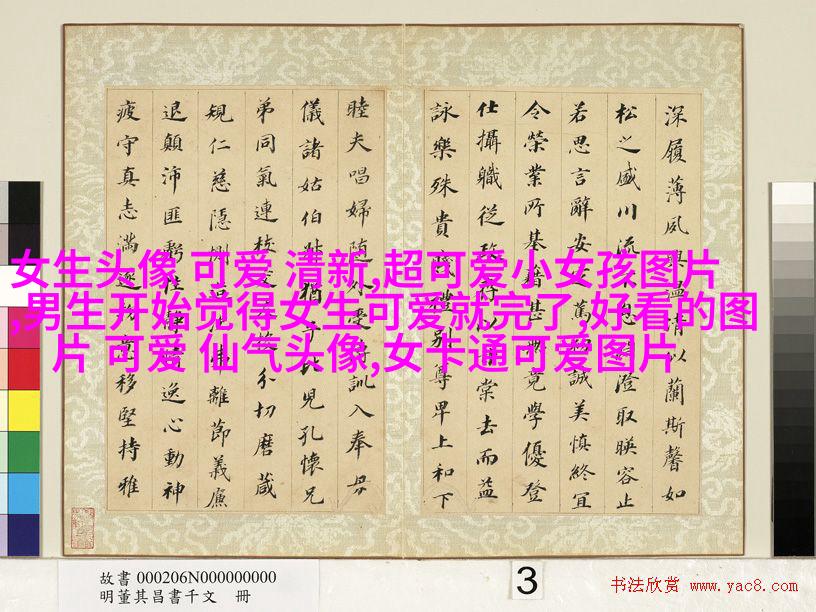 深履薄夙興溫凊似蘭斯馨如
松之盛川流不息澄取暎容止
若思言辭安定篤誠美慎終宜
令榮業所基藉甚竟學優登
仕攝職從政存以棠去而益
詠樂殊貴禮別尊卑上和下
睦夫唱婦隨外受訓入奉母
儀諸姑伯猶子比兒孔懷兄
弟同氣連枝交投分切磨箴
規仁慈隱惻造弗離節義廉
退顛沛匪虧性靜逸心動神
疲守真志滿逐意移堅持雅
女生头像 可爱 清新,超可爱小女孩图片
,男生开始觉得女生可爱就完了,好看的图
片 可爱 仙气头像,女卡通可爱图片
故書 000206N000000000
明董其昌書千文 冊
3
书法欣赏 www.yac8.com